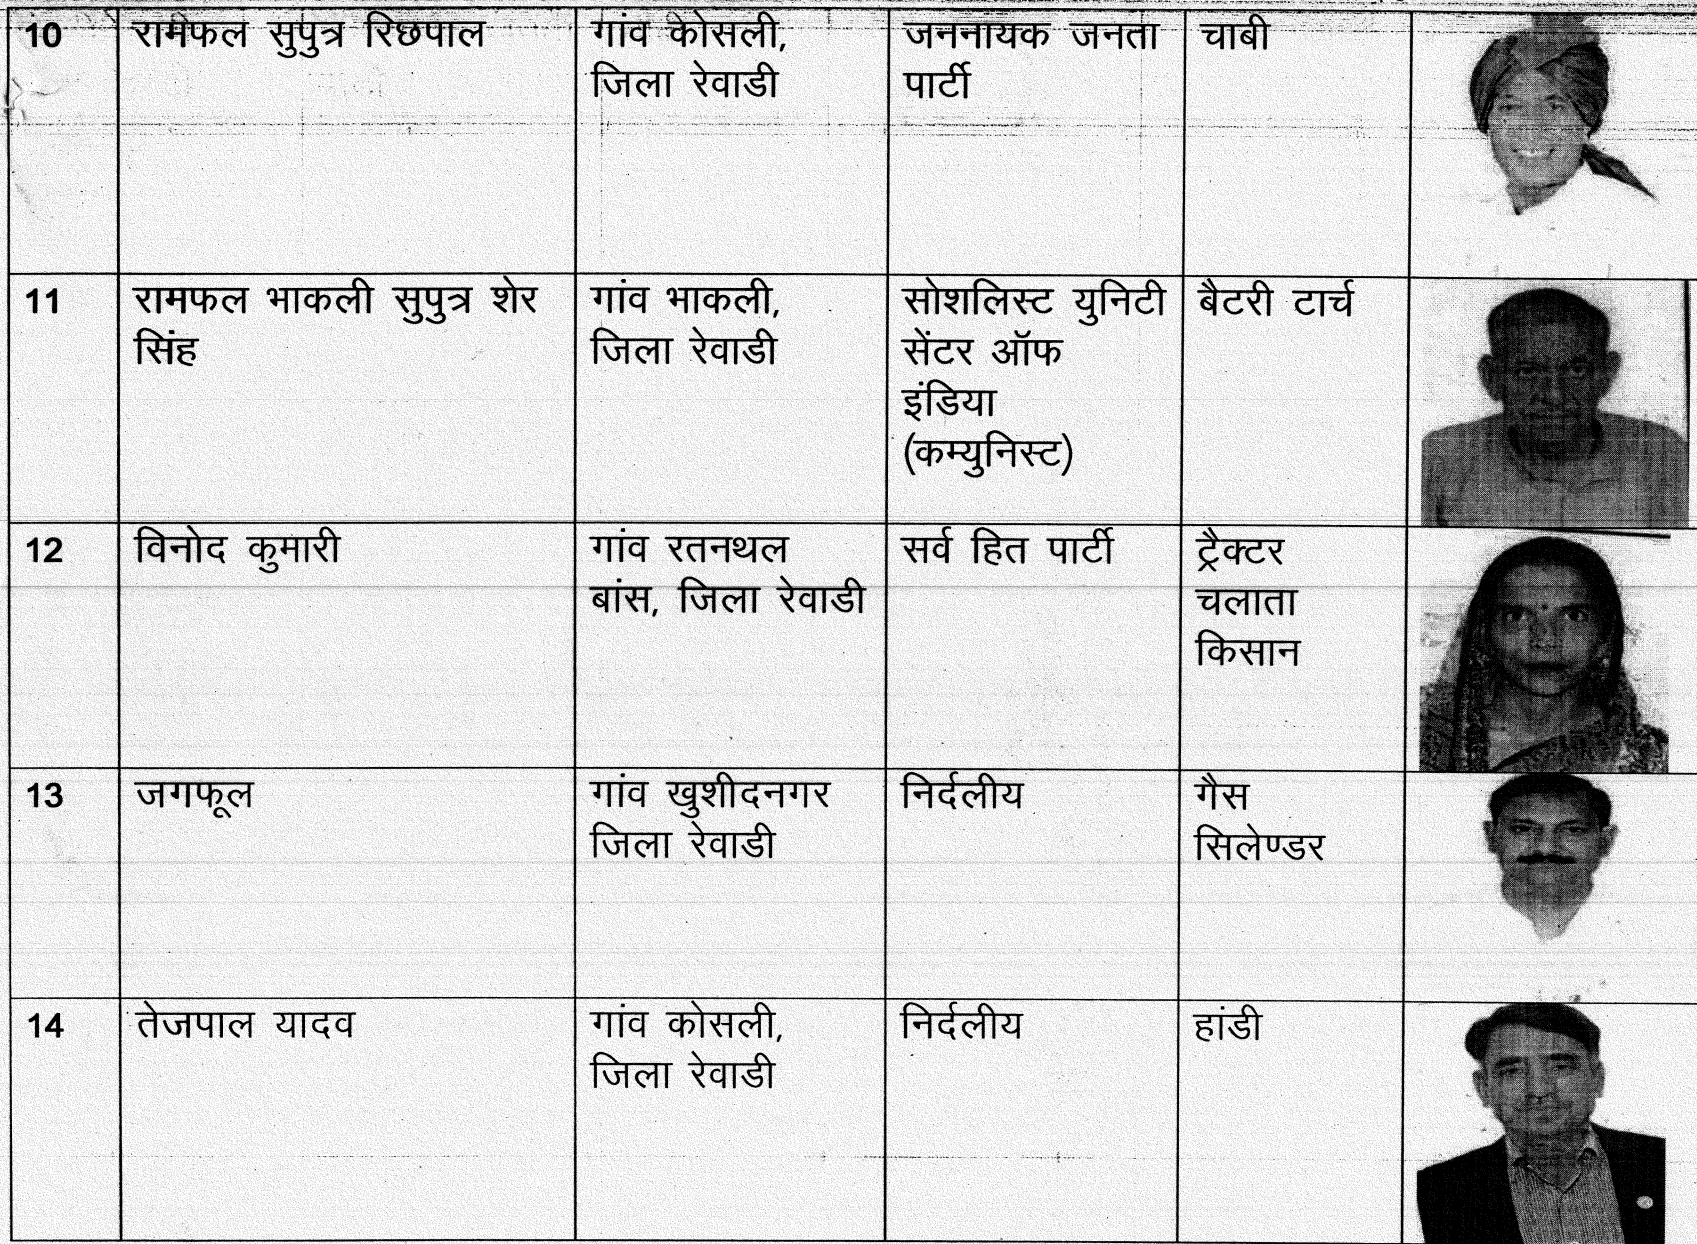 10
रामफल सुपुत्र रिछपाल
गांव कोसली,
जिला रेवाडी
जननायक जनता
पार्टी
चाबी
11
रामफल भाकली सुपुत्र शेर
सिंह
गांव भाकली,
जिला रेवाडी
सोशलिस्ट युनिटी
सेंटर ऑफ
इंडिया
(कम्युनिस्ट)
बैटरी टार्च
12
विनोद कुमारी
गांव रतनथल
बांस, जिला रेवाडी
सर्व हित पार्टी
ट्रैक्टर
चलाता
किसान
13
जगफूल
गांव खुशीदनगर
जिला रेवाडी
निर्दलीय
गैस
सिलेण्डर
14
तेजपाल यादव
गांव कोसली,
जिला रेवाडी
निर्दलीय
हांडी